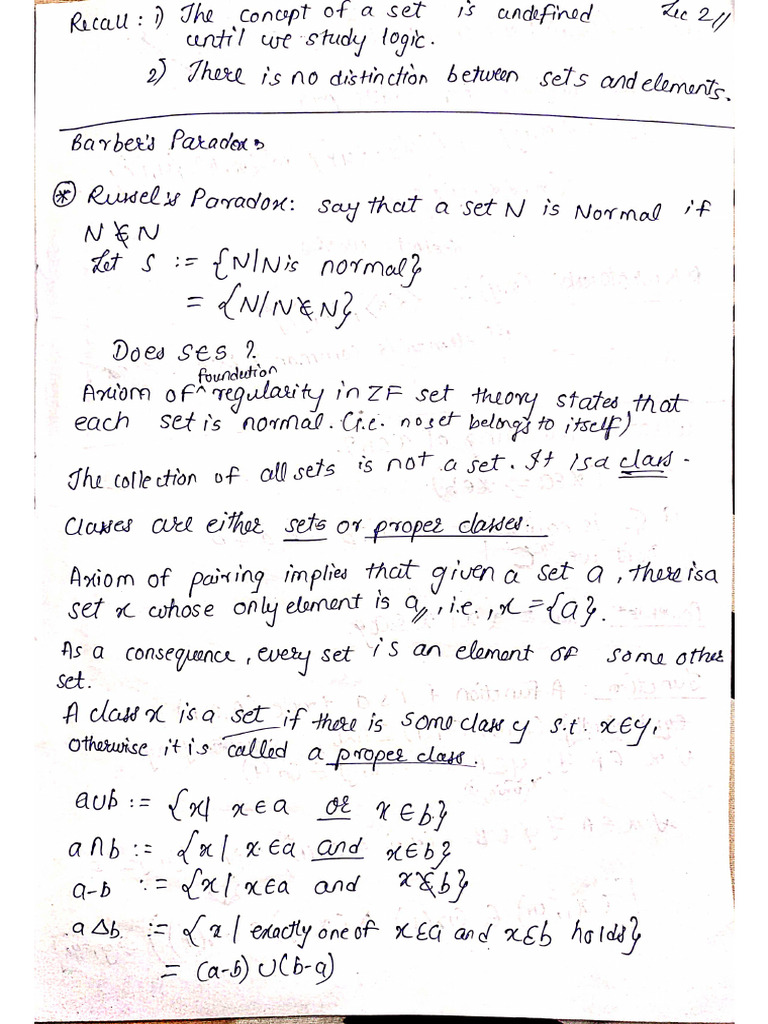 Recall: 1) The concept of a set is undefined Lec 2//
until we study logic.
2) There is no distinction between sets and elements.
Barber's Paradox:
⊛ Russel's Paradox: say that a set N is Normal if
N ∉ N
Let S := {N/N is normal}
= {N/N∉N}
Does S∈S ?
foundation
Axiom of ^ regularity in ZF set theory states that
each set is normal. (i.e. no set belongs to itself)
The collection of all sets is not a set. It is a class.
Classes are either sets or proper classes.
Axiom of pairing implies that given a set a, there is a
set x whose only element is a,, i.e., x = {a}.
As a consequence, every set is an element of some other
set.
A class x is a set if there is some class y s.t. x∈y,
otherwise it is called a proper class.
a∪b := {x| x∈a or x∈b}
a∩b := {x| x∈a and x∈b}
a-b := {x| x∈a and x∉b}
a∆b := {x| exactly one of x∈a and x∈b holds}
= (a-b)∪(b-a)